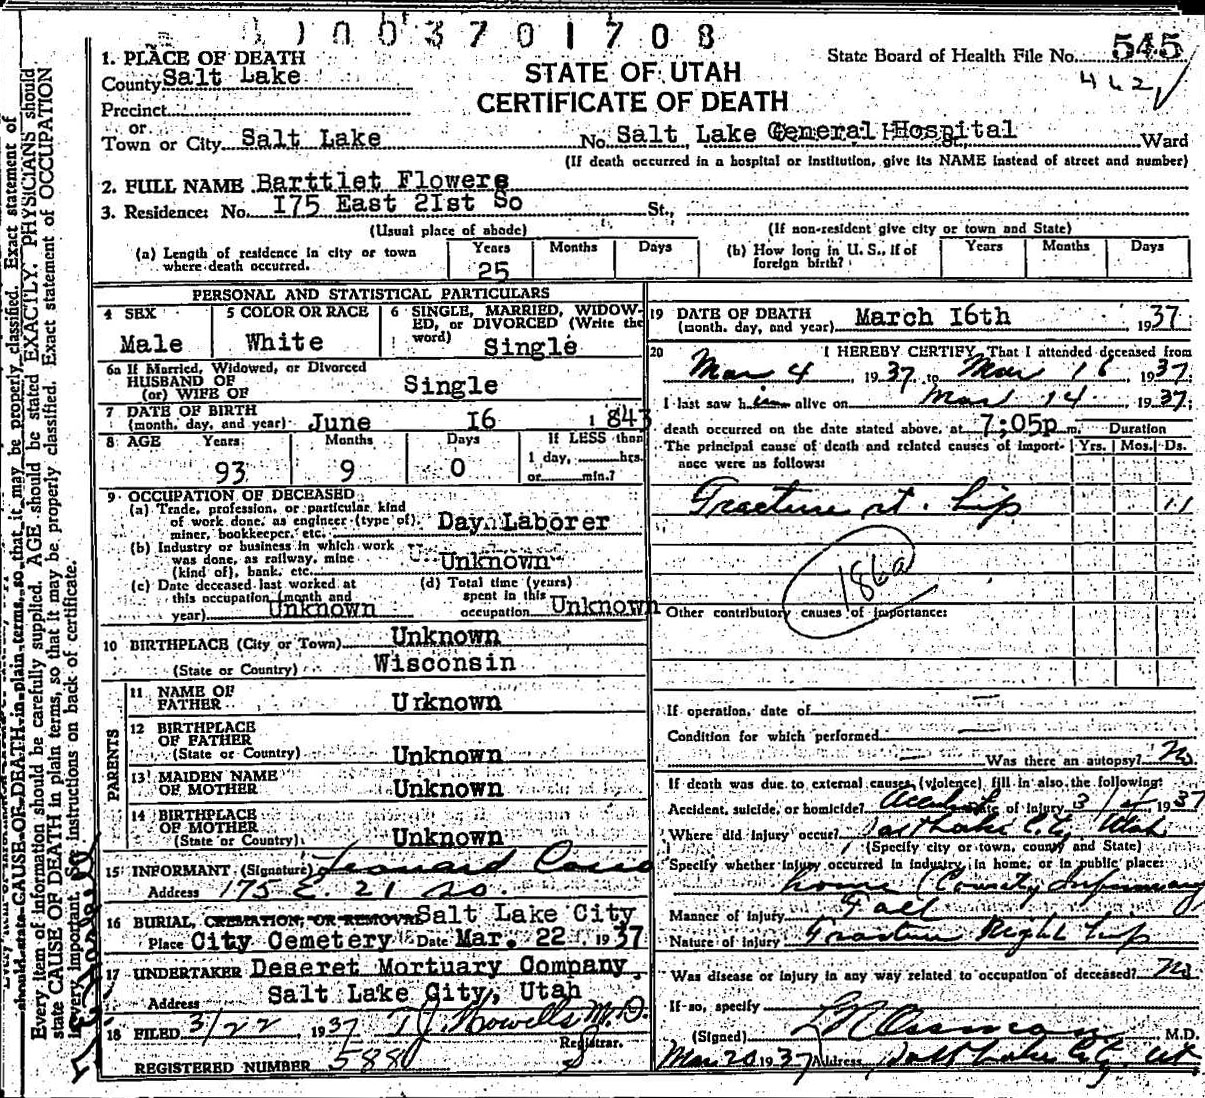 0 1 0 0 3 7 0 1 7 0 8
1. PLACE OF DEATH
County Salt Lake
State Board of Health File No. 545
462
STATE OF UTAH
CERTIFICATE OF DEATH
Precinct
or
Town or City Salt Lake No. Salt Lake General Hospital St., Ward
(If death occurred in a hospital or institution, give its NAME instead of street and number)
2. FULL NAME Barttlet Flowers
3. Residence: No. I75 East 2Ist So St.,
(Usual place of abode) (If non-resident give city or town and State)
(a) Length of residence in city or town where death occurred. Years 25 Months Days
(b) How long in U. S., if of foreign birth? Years Months Days
PERSONAL AND STATISTICAL PARTICULARS
4 SEX Male
5 COLOR OR RACE White
6 SINGLE, MARRIED, WIDOWED, or DIVORCED (Write the word) Single
6a If Married, Widowed, or Divorced
HUSBAND OF
(or) WIFE OF Single
7 DATE OF BIRTH
(month, day, and year) June I6 1843
8 AGE Years 93 Months 9 Days 0
If LESS than
1 day, hrs.
or min.?
9 OCCUPATION OF DECEASED
(a) Trade, profession, or particular kind
of work done, as engineer (type of),
miner, bookkeeper, etc. Day Laborer
(b) Industry or business in which work
was done, as railway, mine
(kind of), bank, etc. Unknown
(c) Date deceased last worked at
this occupation (month and
year) Unknown
(d) Total time (years)
spent in this
occupation Unknown
10 BIRTHPLACE (City or Town) Unknown
(State or Country) Wisconsin
PARENTS
11 NAME OF
FATHER Urknown
12 BIRTHPLACE
OF FATHER
(State or Country) Unknown
13 MAIDEN NAME
OF MOTHER Unknown
14 BIRTHPLACE
OF MOTHER
(State or Country) Unknown
15 INFORMANT (Signature) Leonard
Address 175 E. 21 So.
16 BURIAL, CREMATION, OR REMOVAL Salt Lake City
Place City Cemetery Date Mar. 22 1937
17 UNDERTAKER Deseret Mortuary Company
Address Salt Lake City, Utah
18 FILED 3/22, 1937 T J Howells M.D.
Registrar.
REGISTERED NUMBER 5880
19 DATE OF DEATH
(month, day, and year) March I6th 1937
20 I HEREBY CERTIFY, That I attended deceased from
Mar 4, 1937, to Mar 16, 1937;
I last saw him alive on Mar 14, 1937;
death occurred on the date stated above, at 7;05p m. Duration
The principal cause of death and related causes of importance were as follows: Yrs. Mos. Ds.
Fracture rt. hip 11
186a
Other contributory causes of importance:
If operation, date of
Condition for which performed
Was there an autopsy? No
If death was due to external causes (violence) fill in also the following:
Accident, suicide, or homicide? Accident Date of injury 3/4 1937
Where did injury occur? Salt Lake City Utah
(Specify city or town, county and State)
Specify whether injury occurred in industry, in home, or in public place:
home (County Infirmary
Manner of injury Fall
Nature of injury Fracture Right hip
Was disease or injury in any way related to occupation of deceased? No
If so, specify
(Signed) M.D.
Mar 20 1937 Address Salt Lake City, Ut.
Every item of information should be carefully supplied. AGE should be stated EXACTLY. PHYSICIANS should
state CAUSE OF DEATH in plain terms, so that it may be properly classified. Exact statement of OCCUPATION
is very important. See instructions on back of certificate.